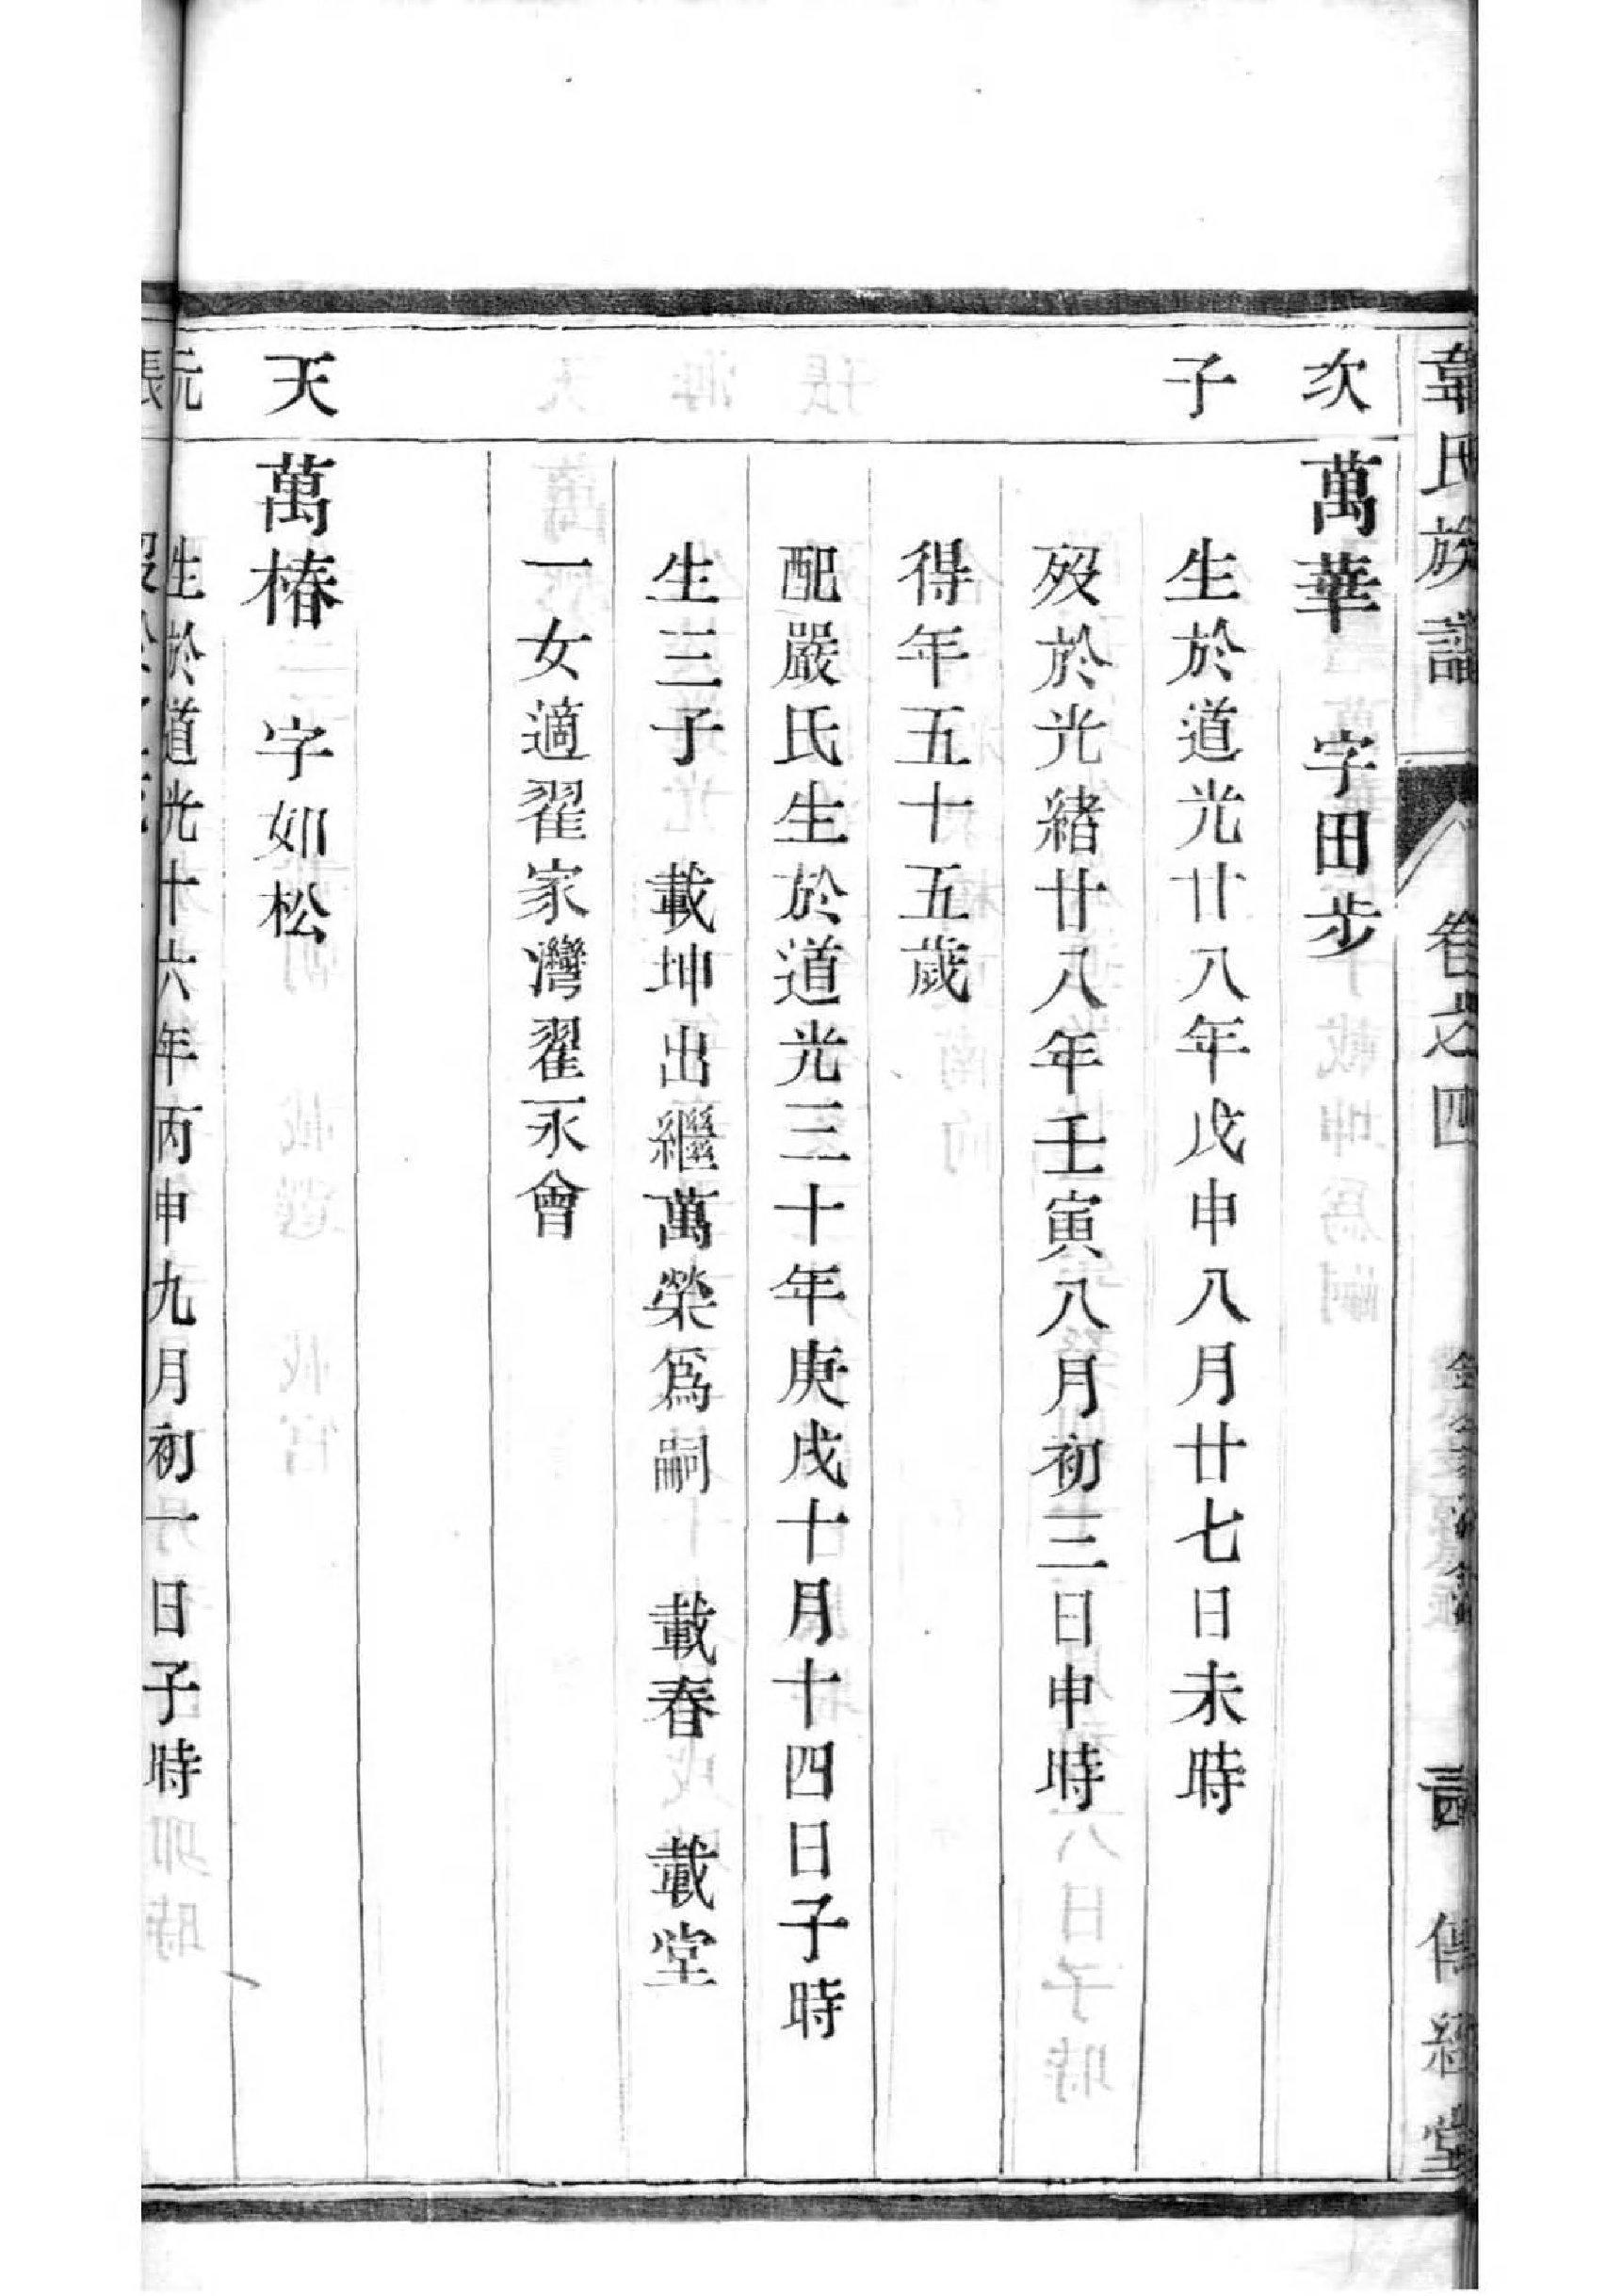 韋氏族譜 卷之四 傳經堂
次 萬華 字田步
子 生於道光廿八年戊申八月廿七日未時
歿於光緒廿八年壬寅八月初三日申時
得年五十五歲
配嚴氏生於道光三十年庚戌十月十四日子時
生三子 載坤出繼萬榮爲嗣 載春 載堂
一女適翟家灣翟永會
天 萬椿 字如松
元 生於道光十六年丙申九月初一日子時
張